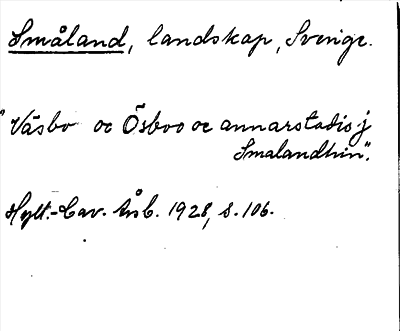 Småland, landskap, Sverige.
"Väsbo oc Ösboo oc annarstadis j
Smalandhin".
Hylt.-Cav. Årsb. 1928, s. 106.